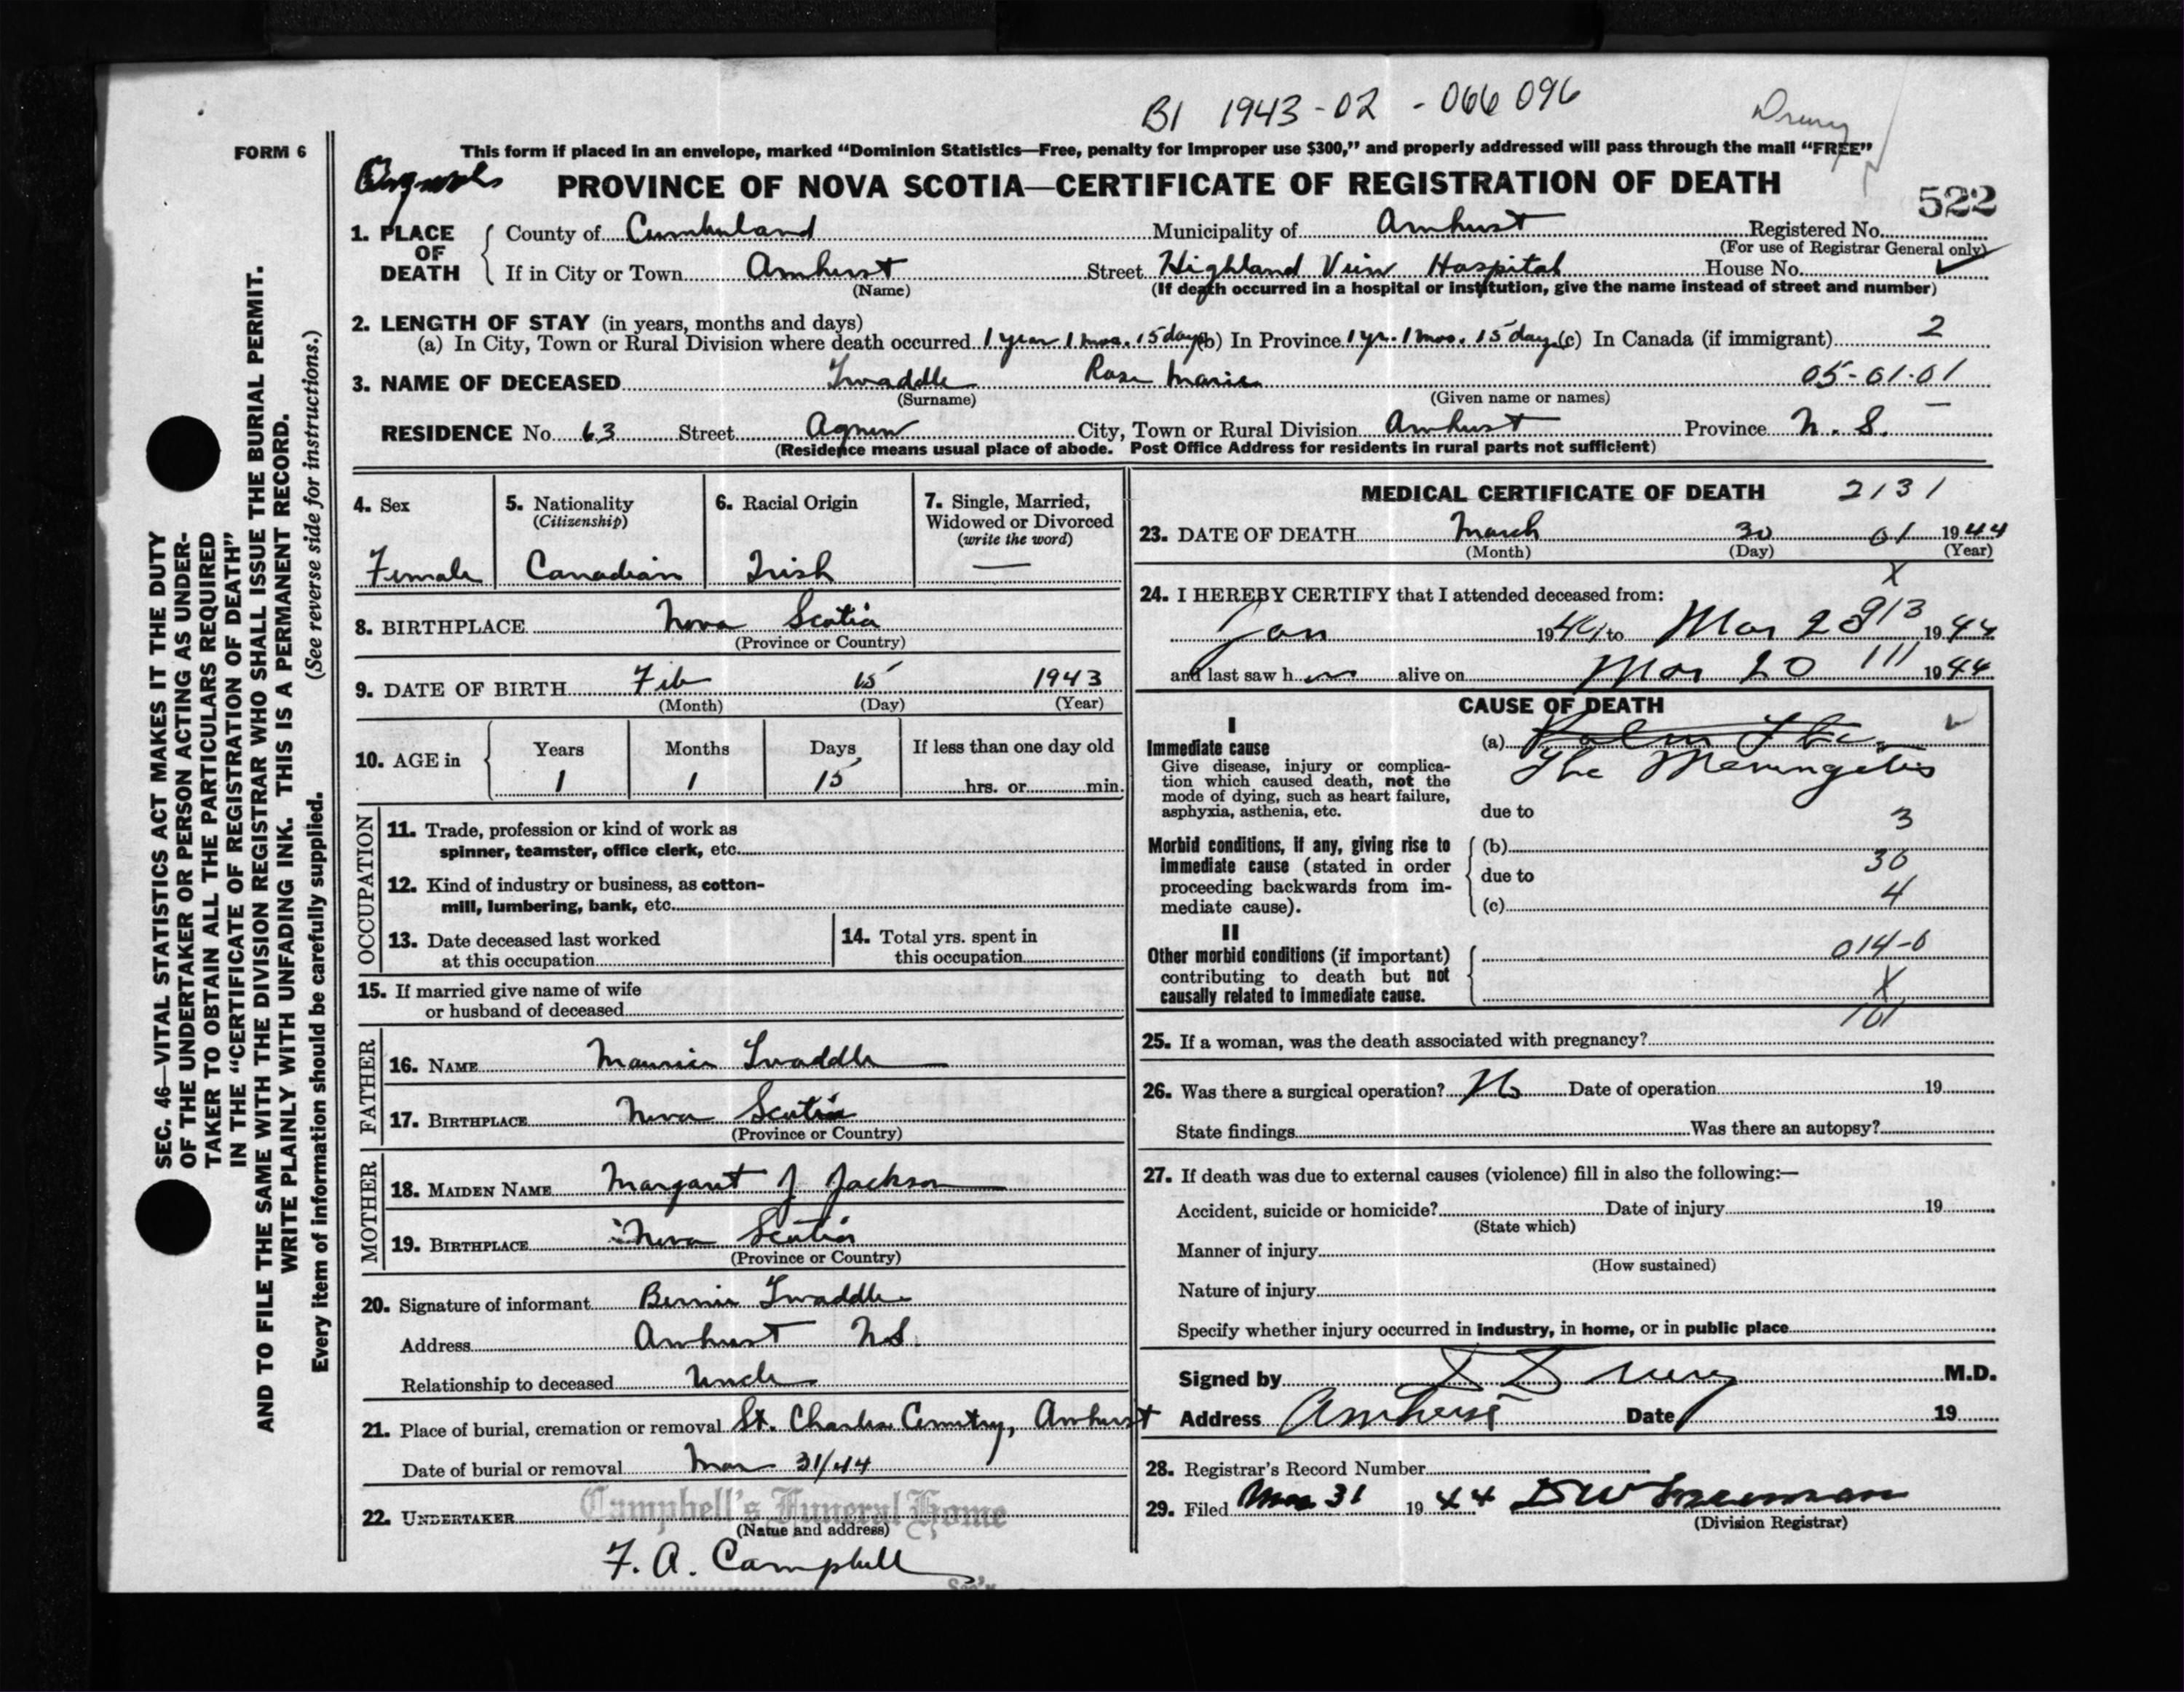 B1 1943-02-066096
Drury
FORM 6
This form if placed in an envelope, marked “Dominion Statistics—Free, penalty for improper use $300,” and properly addressed will pass through the mail “FREE”
PROVINCE OF NOVA SCOTIA—CERTIFICATE OF REGISTRATION OF DEATH
522
1. PLACE OF DEATH
County of Cumberland Municipality of Amherst Registered No.
(For use of Registrar General only)
If in City or Town Amherst Street Highland View Hospital House No.
(Name) (If death occurred in a hospital or institution, give the name instead of street and number)
2. LENGTH OF STAY (in years, months and days)
(a) In City, Town or Rural Division where death occurred 1 year 1 mos. 15 days (b) In Province 1 yr. 1 mos. 15 days (c) In Canada (if immigrant) 2
3. NAME OF DECEASED Twaddle Rose Marie 05-01-01
(Surname) (Given name or names)
RESIDENCE No. 63 Street Agnew City, Town or Rural Division Amherst Province N. S.
(Residence means usual place of abode. Post Office Address for residents in rural parts not sufficient)
4. Sex
Female
5. Nationality
(Citizenship)
Canadian
6. Racial Origin
Irish
7. Single, Married,
Widowed or Divorced
(write the word)
—
8. BIRTHPLACE Nova Scotia
(Province or Country)
9. DATE OF BIRTH Feb 15 1943
(Month) (Day) (Year)
10. AGE in
Years Months Days If less than one day old
1 1 15 hrs. or min.
OCCUPATION
11. Trade, profession or kind of work as
spinner, teamster, office clerk, etc.
12. Kind of industry or business, as cotton-
mill, lumbering, bank, etc.
13. Date deceased last worked
at this occupation
14. Total yrs. spent in
this occupation
15. If married give name of wife
or husband of deceased
FATHER
16. NAME Maurice Twaddle
17. BIRTHPLACE Nova Scotia
(Province or Country)
MOTHER
18. MAIDEN NAME Margaret J Jackson
19. BIRTHPLACE Nova Scotia
(Province or Country)
20. Signature of informant Bernie Twaddle
Address Amherst N.S.
Relationship to deceased Uncle
21. Place of burial, cremation or removal St. Charles Cemetry, Amherst
Date of burial or removal Mar 31/44
22. UNDERTAKER Campbell's Funeral Home
(Name and address)
F. A. Campbell
MEDICAL CERTIFICATE OF DEATH 2131
23. DATE OF DEATH March 30 01 1944
(Month) (Day) (Year)
X
24. I HEREBY CERTIFY that I attended deceased from:
913
Jan 19 to Mar 1944
and last saw h alive on Mar 20 111 1944
CAUSE OF DEATH
I
Immediate cause
Give disease, injury or complica-
tion which caused death, not the
mode of dying, such as heart failure,
asphyxia, asthenia, etc.
(a)
Tbc
due to
3
Morbid conditions, if any, giving rise to
immediate cause (stated in order
proceeding backwards from im-
mediate cause).
(b)
30
due to
4
(c)
II
Other morbid conditions (if important)
contributing to death but not
causally related to immediate cause.
014-6
X
101
25. If a woman, was the death associated with pregnancy?
26. Was there a surgical operation? No Date of operation 19
State findings Was there an autopsy?
27. If death was due to external causes (violence) fill in also the following:—
Accident, suicide or homicide? Date of injury 19
(State which)
Manner of injury
(How sustained)
Nature of injury
Specify whether injury occurred in industry, in home, or in public place
Signed by Drury M.D.
Address Amherst Date 19
28. Registrar's Record Number
29. Filed Mar 31 1944
(Division Registrar)
SEC. 46—VITAL STATISTICS ACT MAKES IT THE DUTY
OF THE UNDERTAKER OR PERSON ACTING AS UNDER-
TAKER TO OBTAIN ALL THE PARTICULARS REQUIRED
IN THE “CERTIFICATE OF REGISTRATION OF DEATH”
AND TO FILE THE SAME WITH THE DIVISION REGISTRAR WHO SHALL ISSUE THE BURIAL PERMIT.
WRITE PLAINLY WITH UNFADING INK. THIS IS A PERMANENT RECORD.
Every item of information should be carefully supplied. (See reverse side for instructions.)